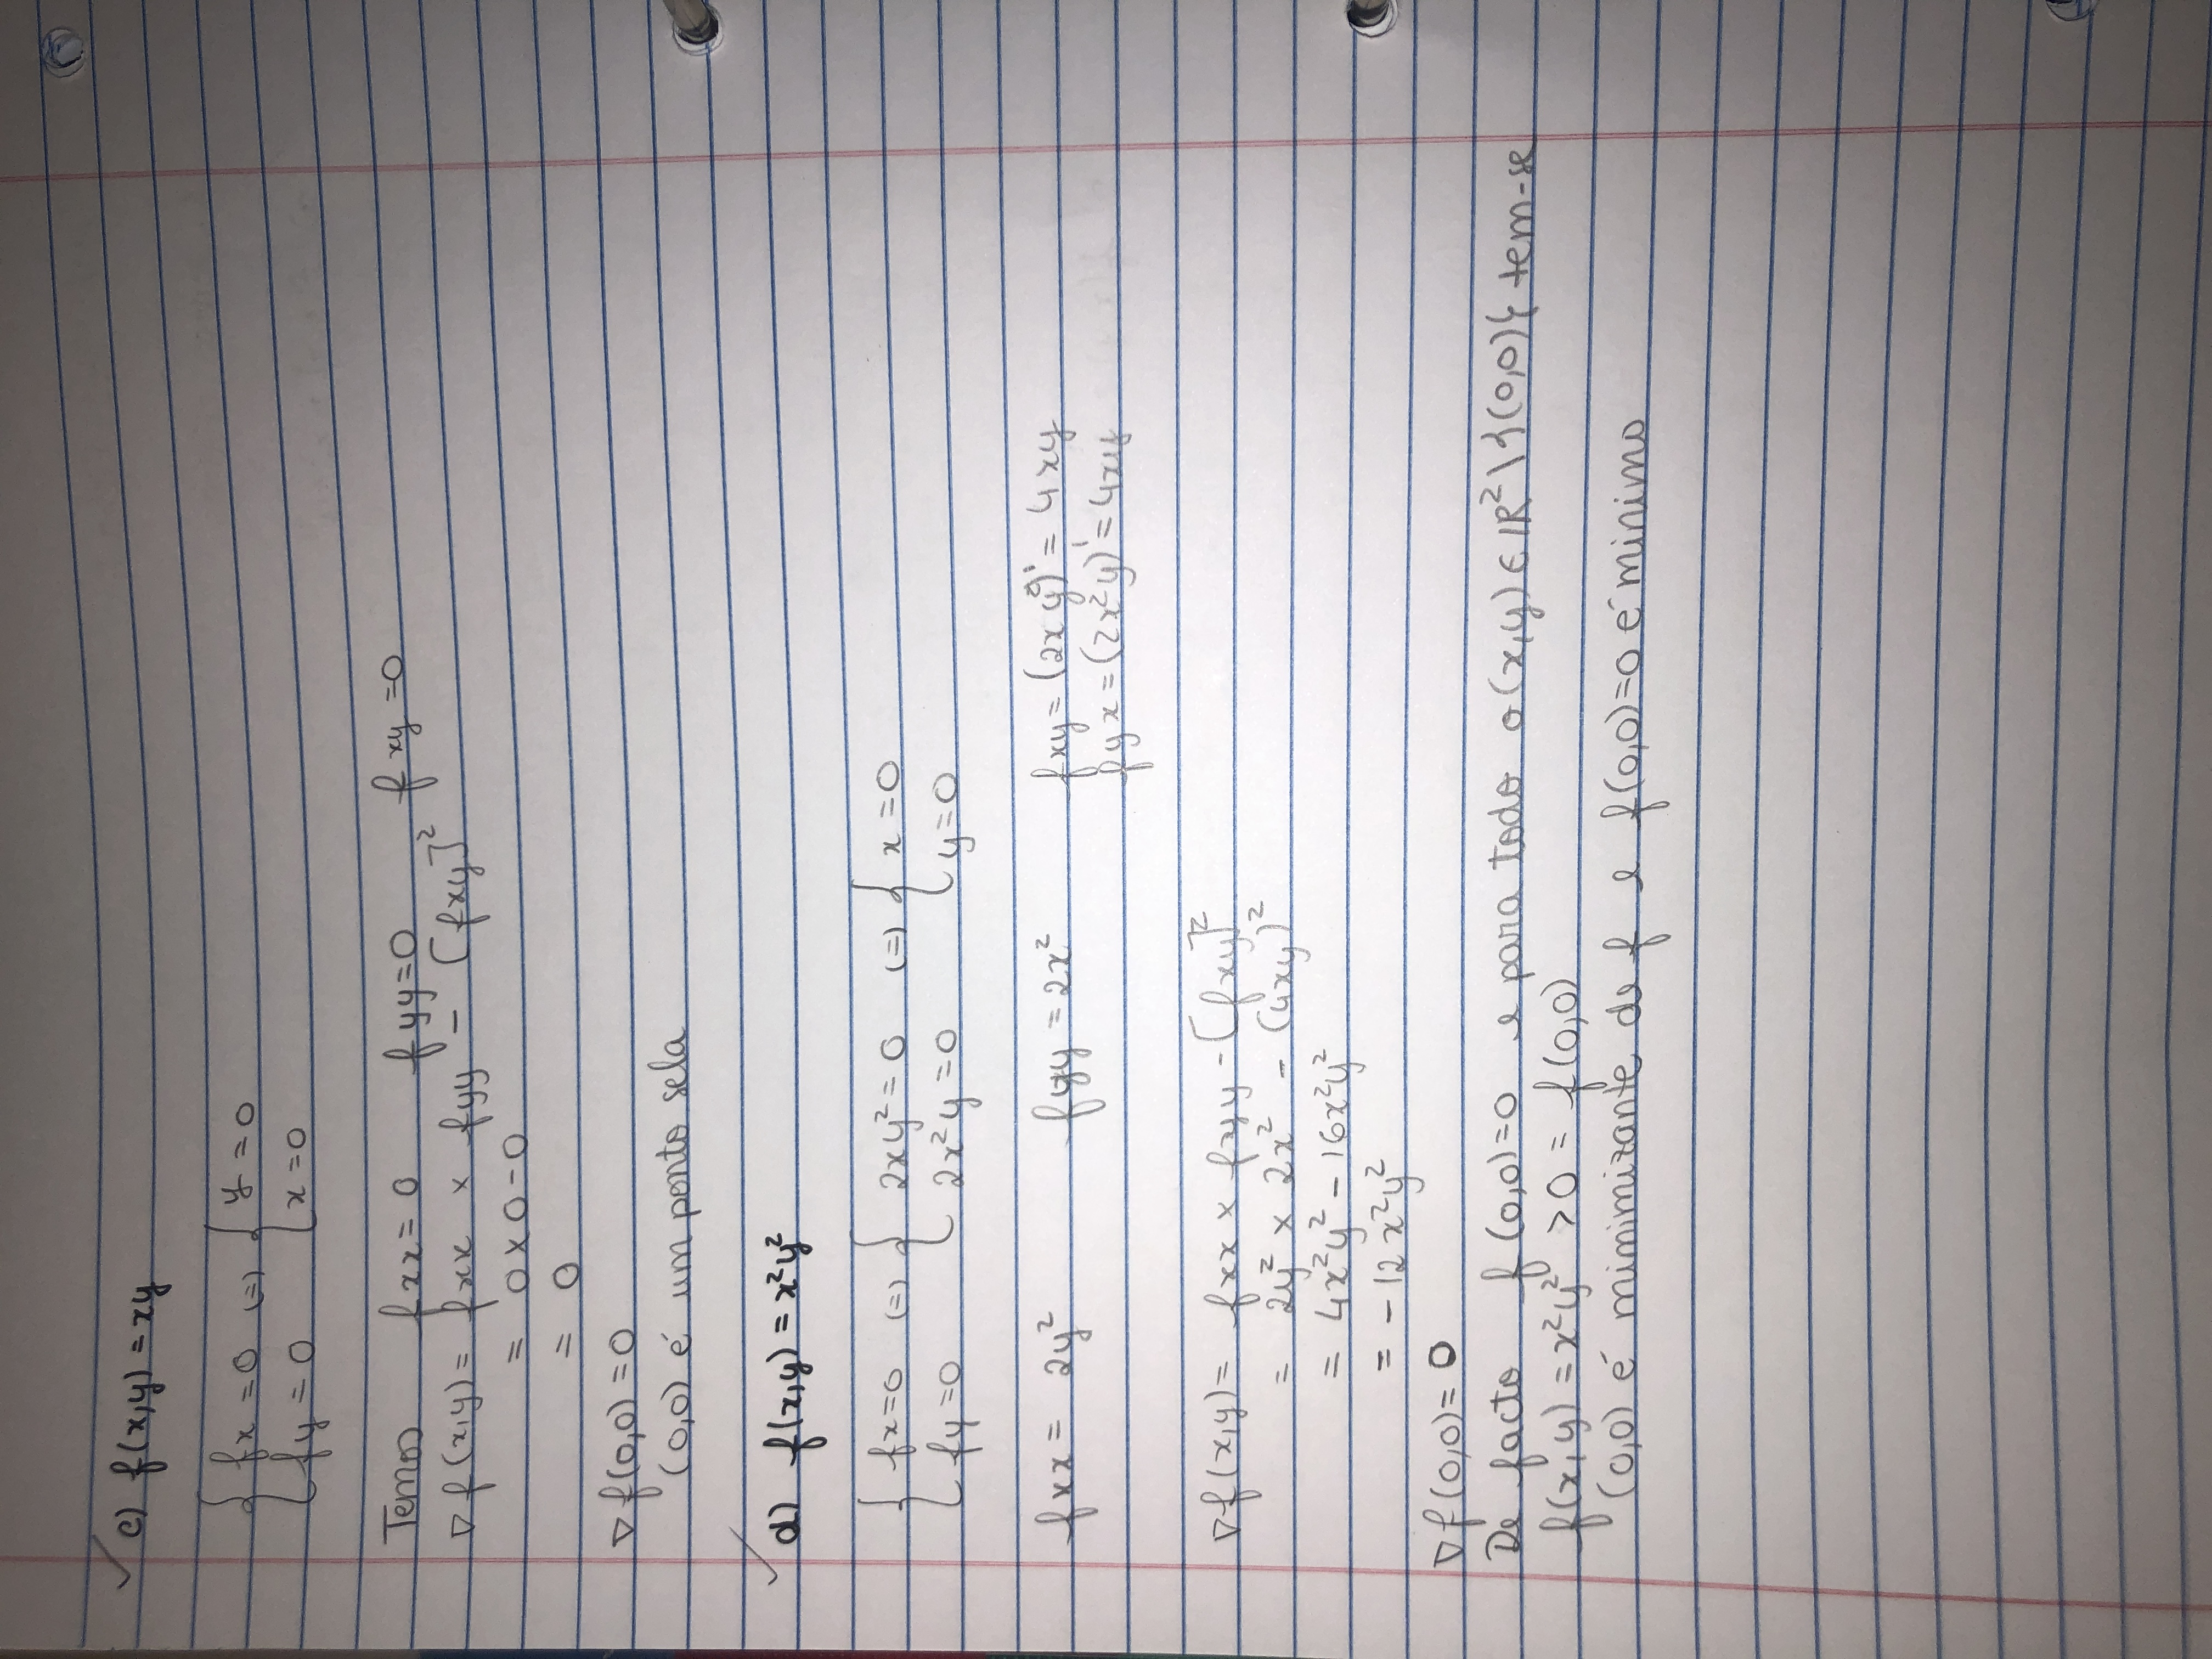 c) f(x,y) = xy
{ fx = 0 (=) { y = 0
fy = 0 x = 0
Temos fxx = 0 fyy = 0 fxy = 0
∇f(x,y) = fxx × fyy - [fxy]²
= 0×0-0
= 0
∇f(0,0) = 0
(0,0) é um ponto sela
d) f(x,y) = x²y²
{ fx=0 (=) { 2xy² = 0 (=) { x = 0
fy = 0 2x²y = 0 y = 0
fxx = 2y² fyy = 2x² fxy = (2xy²)' = 4xy
fyx = (2x²y)' = 4xy
∇f(x,y) = fxx × fyy - [fxy]²
= 2y² × 2x² - (4xy)²
= 4x²y² - 16x²y²
= -12x²y²
∇f(0,0) = 0
De facto f(0,0)=0 e para todo o (x,y) ∈ IR² \ }(0,0){ tem-se
f(x,y) = x²y² > 0 = f(0,0)
(0,0) é minimizante de f e f(0,0)=0 é minimo